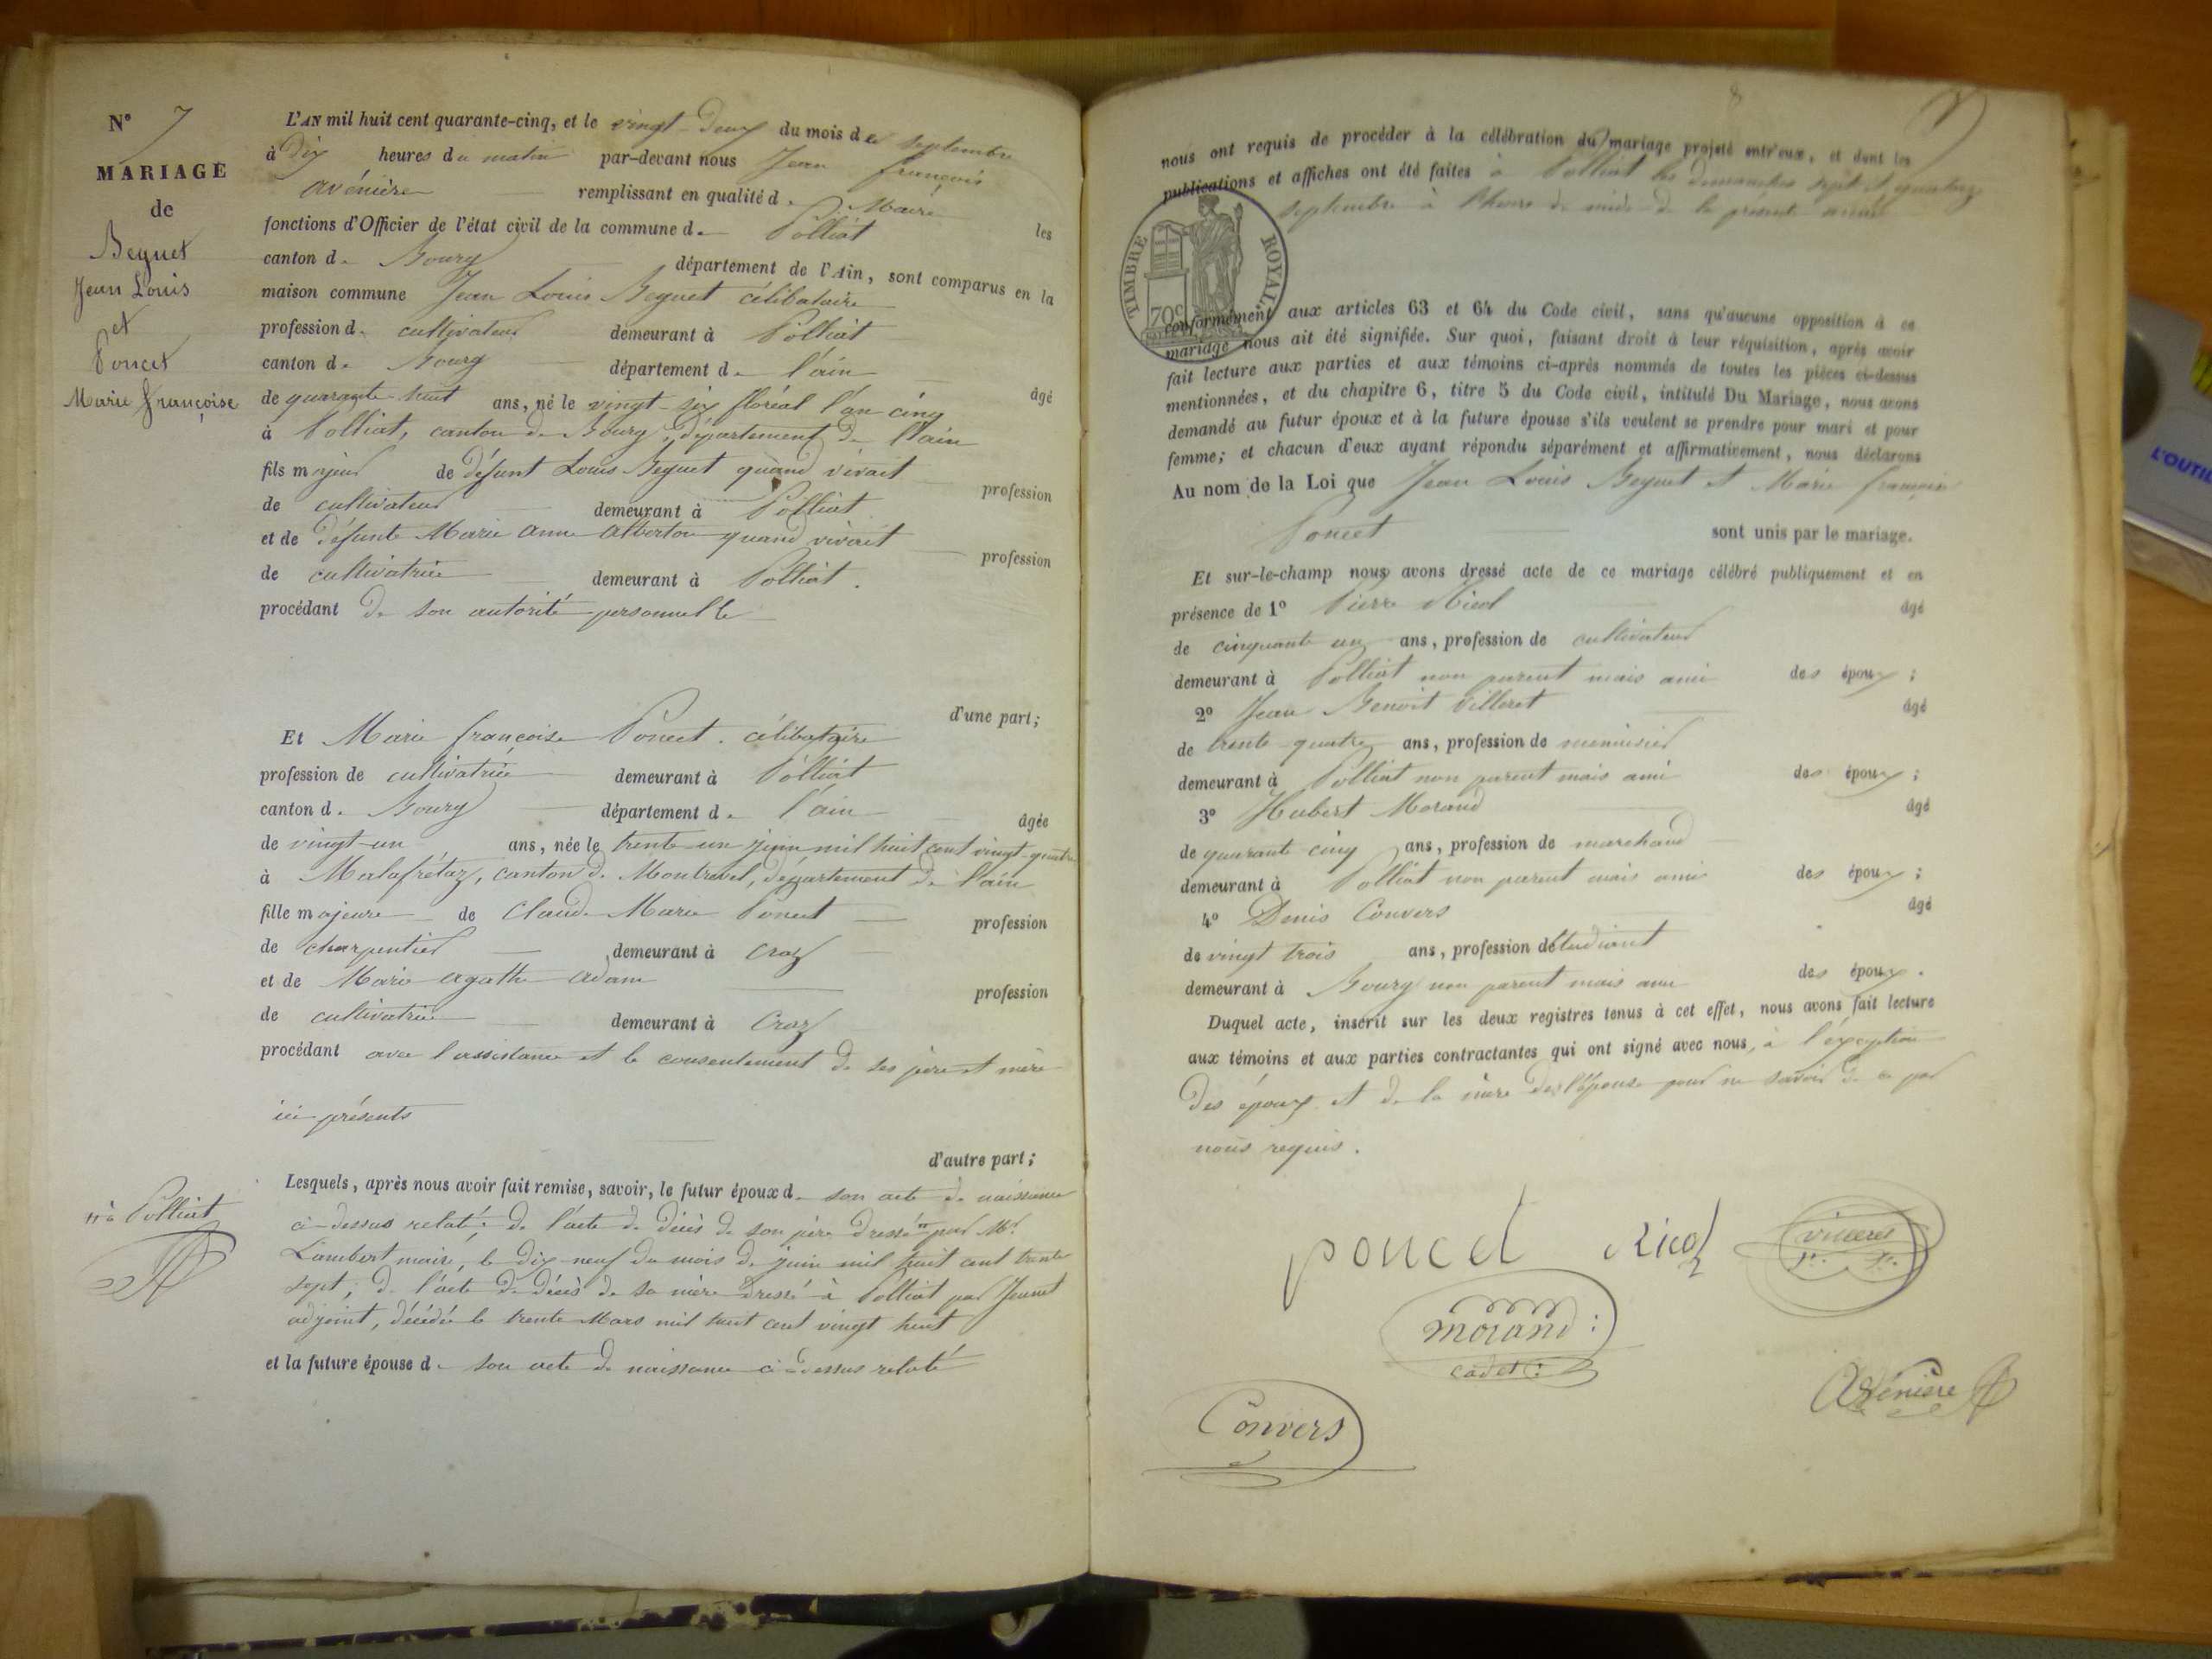 N° 7
MARIAGE
de
Beguet
Jean Louis
et
Poncet
Marie françoise
L'AN mil huit cent quarante-cinq, et le vingt-deux du mois de septembre
à dix heures du matin par-devant nous Jean françois
avénière remplissant en qualité de Maire les
fonctions d'Officier de l'état civil de la commune de Polliat
canton de Bourg département de l'Ain, sont comparus en la
maison commune Jean Louis Beguet célibataire
profession de cultivateur demeurant à Polliat
canton de Bourg département de l'ain âgé
de quarante-huit ans, né le vingt-six floréal l'an cinq
à Polliat, canton de Bourg, département de l'ain
fils majeur de défunt Louis Beguet quand vivait profession
de cultivateur demeurant à Polliat
et de défunte Marie anne alberton quand vivait profession
de cultivatrice demeurant à Polliat.
procédant de son autorité personnelle
d'une part;
Et Marie françoise Poncet. célibataire
profession de cultivatrice demeurant à Polliat
canton de Bourg département de l'ain âgée
de vingt-un ans, née le trente-un juin mil huit cent vingt-quatre
à Malafrétaz, canton de Montrevel, département de l'ain
fille majeure de Claude Marie Poncet profession
de charpentier demeurant à Craz
et de Marie agathe adam profession
de cultivatrice demeurant à Craz
procédant avec l'assistance et le consentement de ses père et mère
ici présents
d'autre part;
Lesquels, après nous avoir fait remise, savoir, le futur époux de son acte de naissance
ci-dessus relaté; de l'acte de décès de son père dressé par Mr
Lambert maire, le dix-neuf du mois de juin mil huit cent trente
sept; de l'acte de décès de sa mère dressé à Polliat par Jeunet
adjoint, décédée le trente Mars mil huit cent vingt huit
et la future épouse de son acte de naissance ci-dessus relaté
à Polliat
nous ont requis de procéder à la célébration du mariage projeté entr'eux, et dont les
publications et affiches ont été faites à Polliat les dimanches sept et quatorze
septembre à l'heure de midi de la présente année
TIMBRE ROYAL
70c
conformément aux articles 63 et 64 du Code civil, sans qu'aucune opposition à ce
mariage nous ait été signifiée. Sur quoi, faisant droit à leur réquisition, après avoir
fait lecture aux parties et aux témoins ci-après nommés de toutes les pièces ci-dessus
mentionnées, et du chapitre 6, titre 5 du Code civil, intitulé Du Mariage, nous avons
demandé au futur époux et à la future épouse s'ils veulent se prendre pour mari et pour
femme; et chacun d'eux ayant répondu séparément et affirmativement, nous déclarons
Au nom de la Loi que Jean Louis Beguet et Marie françoise
Poncet sont unis par le mariage.
Et sur-le-champ nous avons dressé acte de ce mariage célébré publiquement et en
présence de 1° Pierre Nicol âgé
de cinquante un ans, profession de cultivateur
demeurant à Polliat non parent mais ami des époux;
2° Jean Benoit Villeret âgé
de trente-quatre ans, profession de menuisier
demeurant à Polliat non parent mais ami des époux;
3° Hubert Morand âgé
de quarante cinq ans, profession de marchand
demeurant à Polliat non parent mais ami des époux;
4° Denis Convers âgé
de vingt trois ans, profession d'étudiant
demeurant à Bourg non parent mais ami des époux.
Duquel acte, inscrit sur les deux registres tenus à cet effet, nous avons fait lecture
aux témoins et aux parties contractantes qui ont signé avec nous, à l'exception
des époux et de la mère de l'épouse pour ne savoir de ce par
nous requis.
poncet
Morand
cadet
Convers
Avénière
L'OUTIL